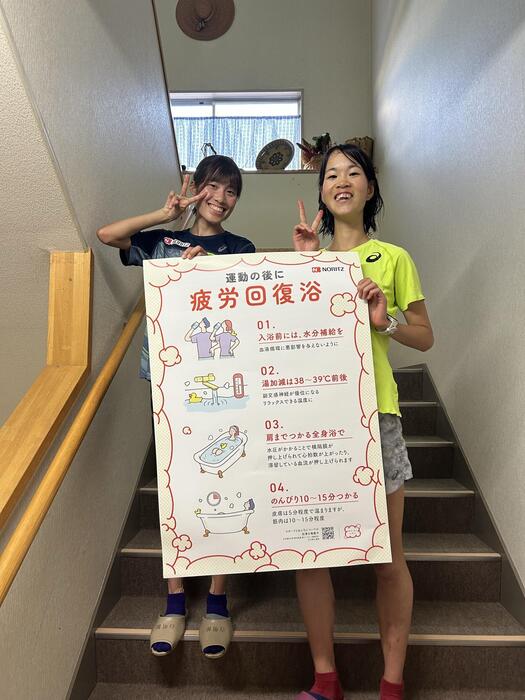 運動の後に
NORITZ
疲労回復浴
01.
入浴前には、水分補給を
血液循環に悪影響を与えないように
02.
湯加減は38〜39℃前後
副交感神経が優位になる
リラックスできる温度に
03.
肩までつかる全身浴で
水圧がかかることで横隔膜が
押し上げられて心拍数が上がったり、
滞留している血流が押し上げられます
04.
のんびり10〜15分つかる
皮膚は5分程度で温まりますが、
筋肉は10〜15分程度